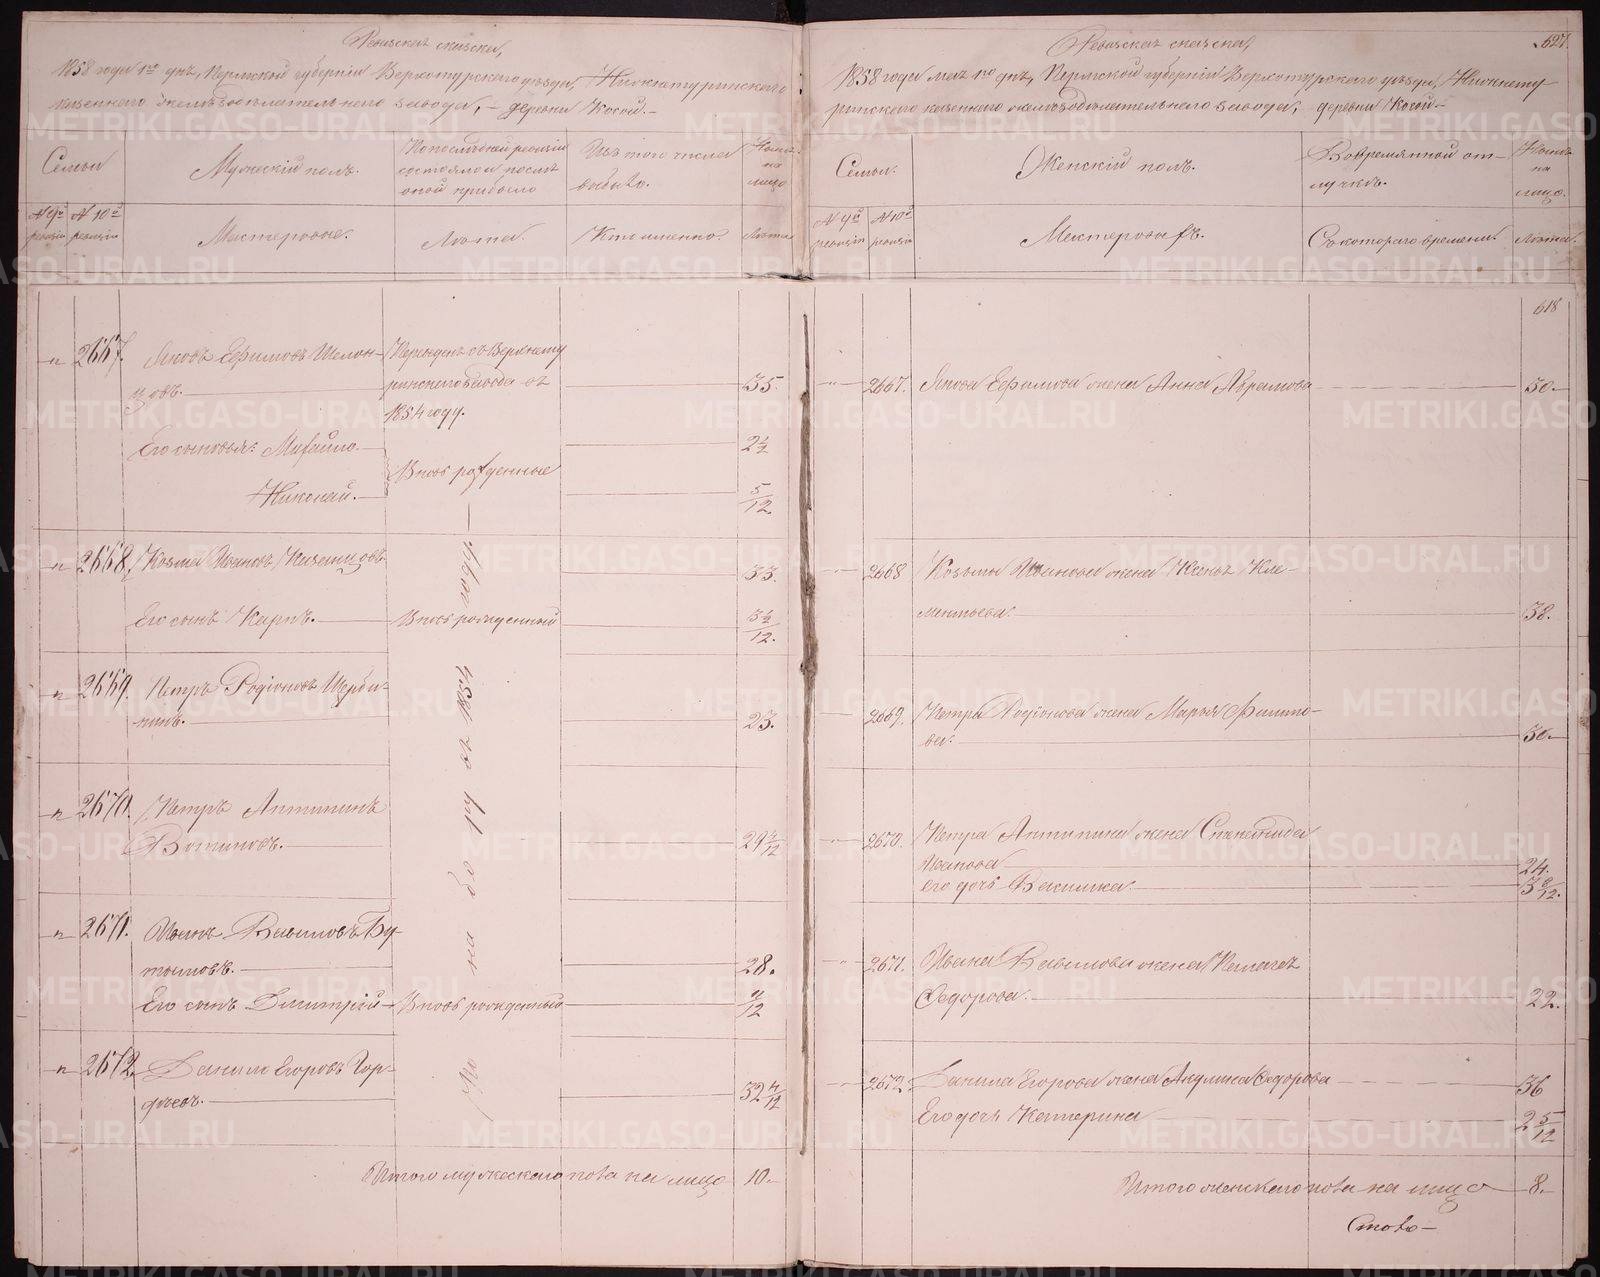 Ревизская сказка,
1858 года 1го дня, Пермской губернiи Верхотурского уѣзда, Нижнетуринского
казеннаго желѣзодѣлательнаго завода, – деревни Косой. –
Семьи
Мужескiй полъ.
По послѣдней ревизiи
состояло и послѣ
оной прибыло
Изъ того числа
выбыло.
Нынѣ
на
лицо
№ 9й
ревизiи
№ 10й
ревизiи
Мастеровые.
Лѣта.
Кто именно.
Лѣта
2667.
Яковъ Ефимовъ Шелон-
цовъ.
Переведенъ съ Верхнету
ринскаго завода въ
1854 году.
35.
Его сыновья: Михайло.
2 1/2
Николай.
Вновь рожденные
5/12.
2668.
Козьма Ивановъ Казанцовъ
33.
Его сынъ Карпъ.
Вновь рожденный
3 1/2/12.
2669.
Петръ Родiоновъ Щерби-
нинъ.
23.
2670.
Петръ Антипинъ
Вотиновъ.
29 4/12
2671.
Иванъ Вавиловъ Бу-
тыловъ.
28.
Его сынъ Дмитрiй
Вновь рожденный
9/12
2672.
Данило Егоровъ Гор-
дѣевъ.
32 4/12
Итого мужескаго пола на лицо 10.–
627.
Ревизская сказка,
1858 года мая 1го дня, Пермской губернiи Верхотурскаго уѣзда, Нижнету
ринскаго казеннаго желѣзодѣлательнаго завода, деревни Косой –
Семьи.
Женскiй полъ.
Во временной от-
лучкѣ.
Нынѣ
на
лицо.
№ 9й
ревизiи
№ 10й
ревизiи
Съ котораго времени.
Лѣта.
618
2667.
Якова Ефимова жена Анна Абрамова
30.–
2668
Козьмы Иванова жена Ксенья Кле-
ментьева.
38.
2669.
Петра Родiонова жена Марья Филипо-
ва.
30.–
2670.
Петра Антипина жена Степанида
Иванова
24.
его дочь Василиса.
3 8/12.
2671.
Ивана Вавилова жена Пелагея
Федорова.
22.
2672.
Данила Егорова жена Акулина Федорова
36
Его дочь Катерина
2 5/12
Итого женскаго пола на лицо 8.–
METRIKI.GASO-URAL.RU